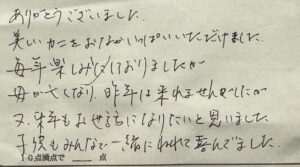 ありがとうございました。
美しいカニをおなかいっぱいいただけました。
毎年楽しみにしておりましたが
母が亡くなり、昨年は来れませんでしたが
又、来年もお世話になりたいと思いました。
子供もみんなで一緒に
喜んでました。
10点満点で 点